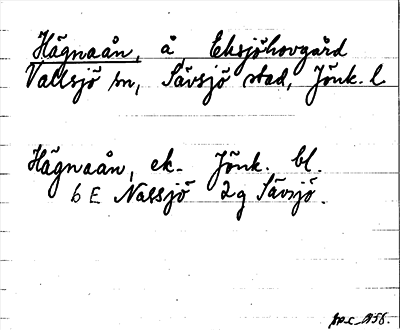 Hägnaån, å, Eksjöhovgård
Vallsjö sn, Sävsjö stad, Jönk. l.
Hägnaån, ek. Jönk. bl.
6 E Nässjö 2g Sävsjö.